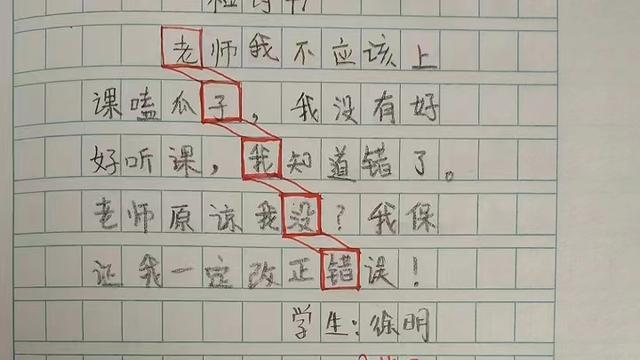 老师我不应该上
课嗑瓜子，我没有好
好听课，我知道错了。
老师原谅我没？我保
证我一定改正错误！
学生：徐明